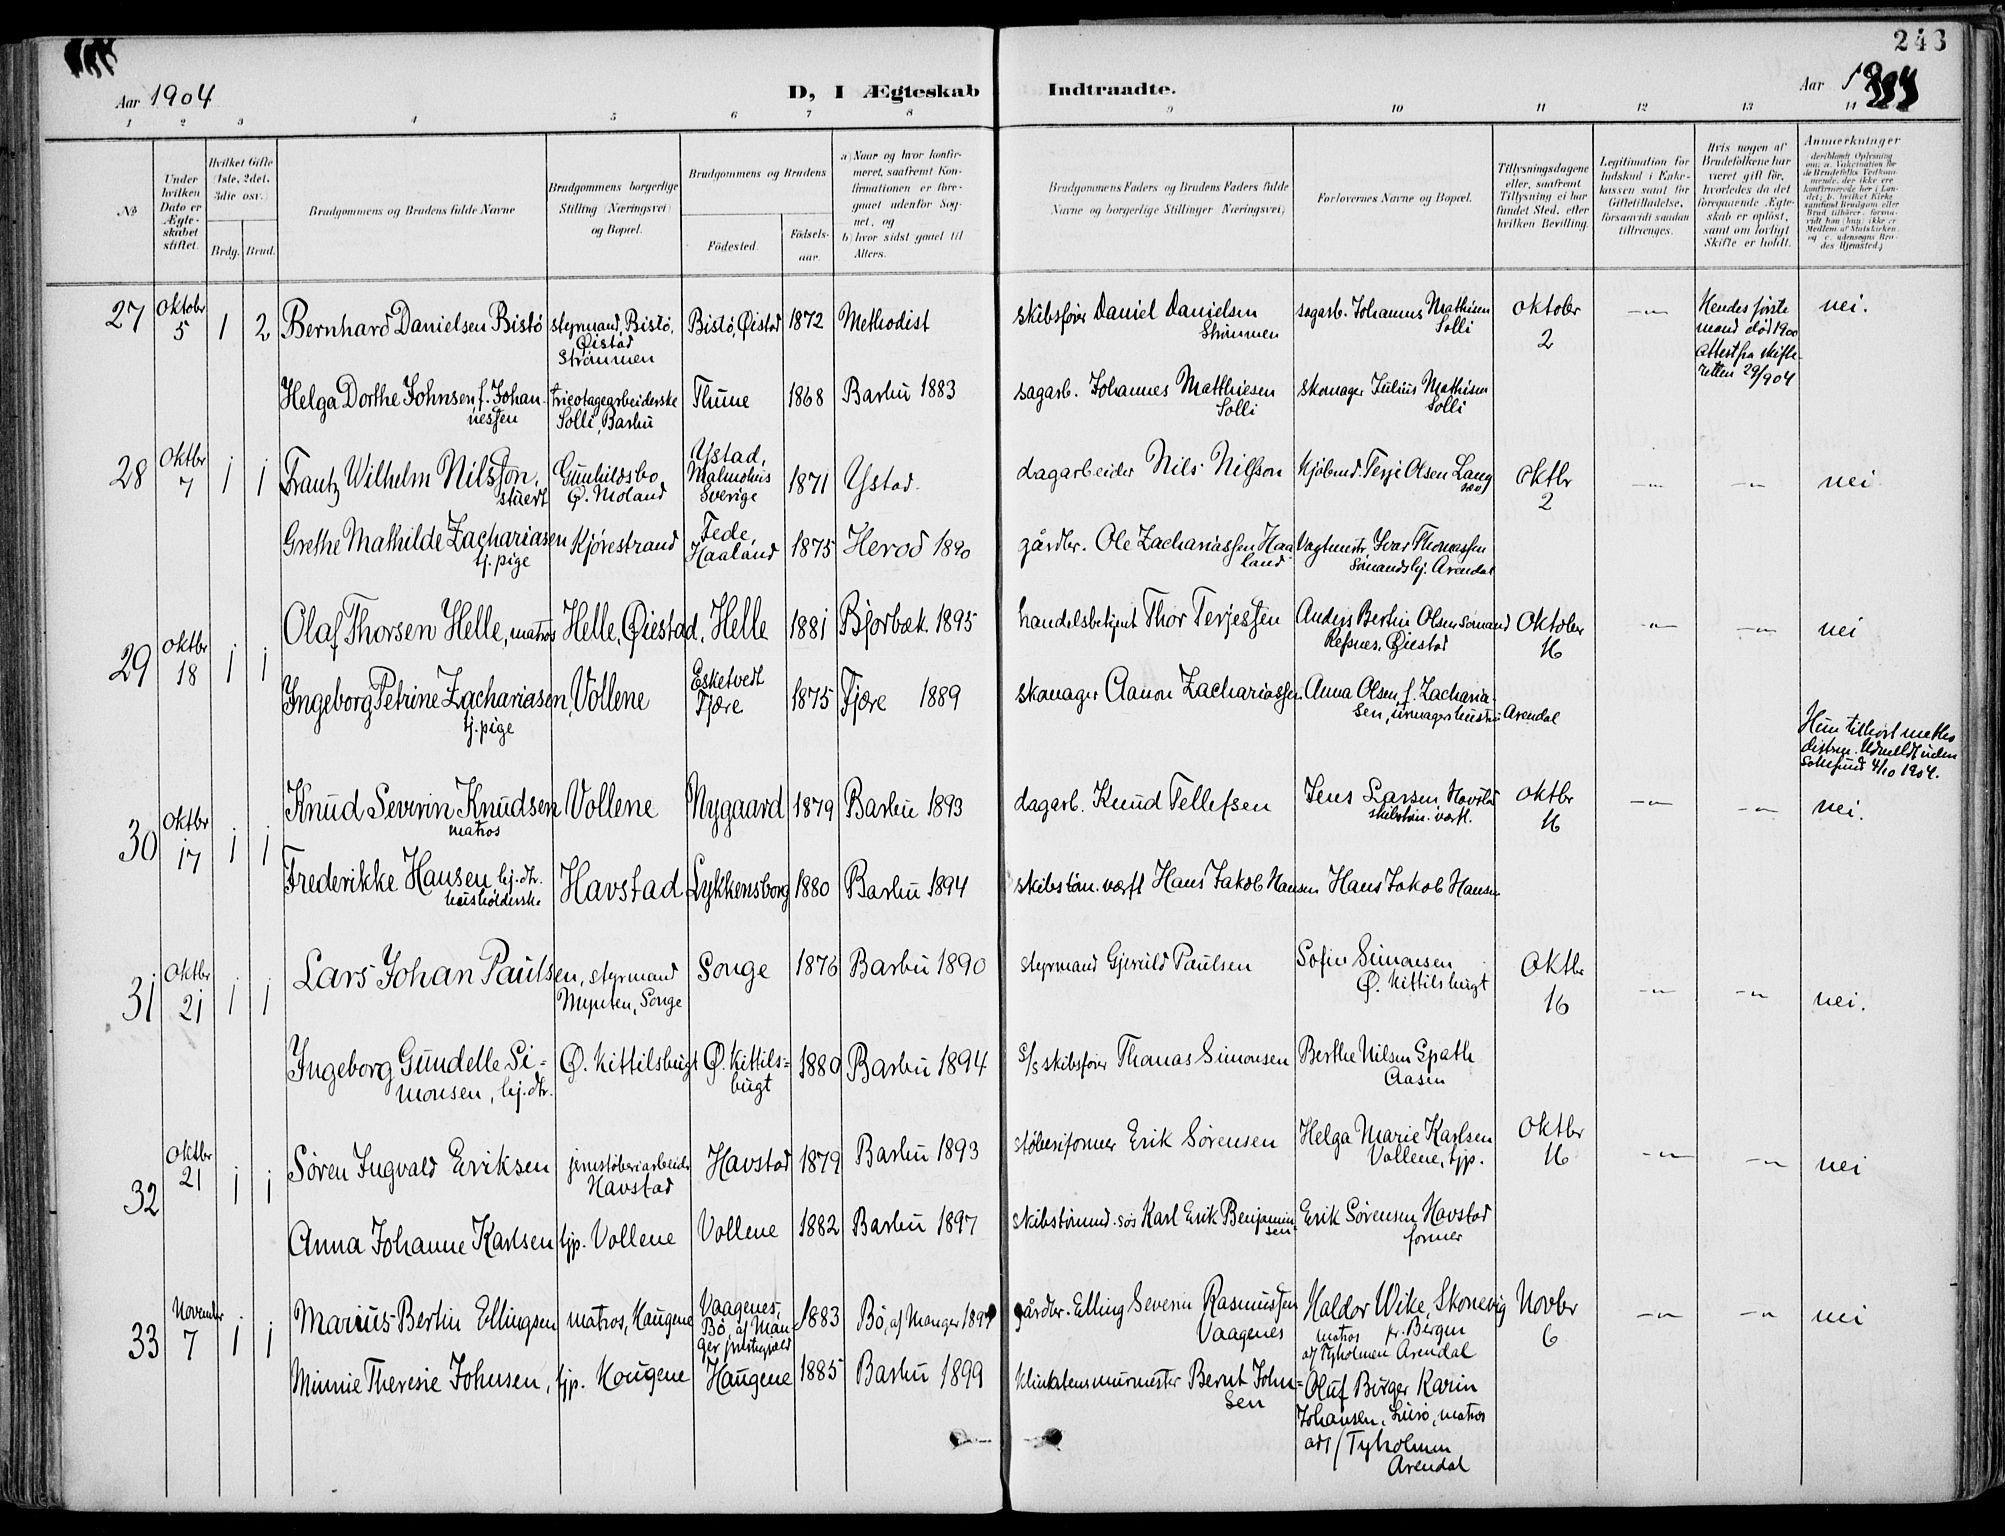 243
Aar 1904
D, I Ægteskab Indtraadte.
Aar
1 2 3 4 5 6 7 8 9 10 11 12 13 14
No.
Under hvilken Dato er Ægteskabet stiftet.
Hvilket Gifte (1ste, 2det, 3die osv.)
Brdg. Brud.
Brudgommens og Brudens fulde Navne
Brudgommens borgerlige Stilling (Næringsvei) og Bopæl.
Brudgommens og Brudens
Födested. Födselsaar.
a) Naar og hvor konfirmeret, saafremt Konfirmationen er foregaaet udenfor Sognet, og
b) hvor sidst gaaet til Alters.
Brudgommens Faders og Brudens Faders fulde Navne og borgerlige Stillinger (Næringsvei)
Forlovernes Navne og Bopæl.
Tillysningsdagene eller, saafremt Tillysning ei har fundet Sted, efter hvilken Bevilling.
Legitimation for Indskud i Enkekassen samt for Giftetilladelse, forsaavidt saadan tiltrænges.
Hvis nogen af Brudefolkene har været gift før, hvorledes da det foregaaende Ægteskab er opløst, samt om lovligt Skifte er holdt.
Anmærkninger
27 Oktober 5 1 2 Bernhard Danielsen Bistö styrmand, Bistö, Øistad Strömmen Bistö, Øistad 1872 Methodist skibsfører Daniel Danielsen Strömmen sagarb. Johannes Mathisen Solli Oktober 2 -"- Hendes første mand død 1900 Attest fra skifteretten 29/904 nei.
Helga Dorthe Johnsen f. Johannessen tricotagearbeiderske Solli, Barbu Thune 1868 Barbu 1883 sagarb. Johannes Matthiesen Solli skomager Julius Mathisen Solli
28 Oktbr 7 1 1 Frantz Wilhelm Nilsson, stuert Gunhildsbo Ø. Moland Ystad, Malmøhus Sverige 1871 Ystad. dagarbeider Nils Nilsson Kjøbmd. Terje Olsen Langsæv Oktbr 2 -"- -"- nei
Grethe Mathilde Zachariasen tj. pige Kjørestrand Fede, Haaland 1875 Herod 1890 gårdbr. Ole Zachariassen Haaland Vagtmestr. Ivar Thomassen Sømandshj. Arendal
29 Oktbr 18 1 1 Olaf Thorsen Helle, matros Helle, Øiestad, Helle 1881 Bjorbæk 1895 handelsbetjent Thor Terjessen Anders Bertin Olsen sømand Refsnes, Øiestad Oktober 16 -"- -"- nei
Ingeborg Petrine Zachariasen, tj. pige Vollene Esketvedt Fjære 1875 Fjære 1889 skomager Aanon Zachariassen Anna Olsen, f. Zachariasen, urmagerhustru Arendal
Hun tilhørt methodistm. Udmeldt uden
4/10 1904.
30 Oktbr 17 1 1 Knud Severin Knudsen matros Vollene Nygaard 1879 Barbu 1893 dagarb. Knud Tellefsen Jens Larsen, Havstad skibstøm. værft. Oktbr 16 -"- -"- nei.
Frederikke Hansen hj. dtr. husholderske Havstad Lykkensborg 1880 Barbu 1894 skibstøm. værft Hans Jakob Hansen Hans Jakob Hansen
31 Oktbr 21 1 1 Lars Johan Paulsen, styrmand Mynten, Songe Songe 1876 Barbu 1890 styrmand Gjeruld Paulsen Sofie Simonsen Ø. Kittilsbugt Oktbr 16 -"- -"- nei.
Ingeborg Gundelle Simonsen, hj. dtr. Ø. Kittilsbugt Ø. Kittilsbugt 1880 Barbu 1894 S/S skibsfører Thomas Simonsen Berthe Nilsen Aasen
32 Oktbr 21 1 1 Søren Ingvald Eriksen jernstøberiarbeider Havstad Havstad 1879 Barbu 1893 støberiformer Erik Sørensen Helga Marie Karlsen Vollene, tjp. Oktbr 16 -"- -"- nei
Anna Johanne Karlsen tjp. Vollene Vollene 1882 Barbu 1897 skibstømmd. søs Karl Erik Benjaminsen Erik Sørensen Havstad former
33 November 7 1 1 Marius Bertin Ellingsen matros, Haugene Vaagenes, Bö, af Manger prestegjæld 1883 Bö, af Manger 1897 gårdbr. Elling Severin Rasmussen Vaagenes Haldor Wike, Skonevig matros pr. Bergen ad/Tyholmen Arendal Novbr 6 -"- -"- nei
Minnie Theresie Johnsen, tjp. Haugene Haugene 1885 Barbu 1899 murmester Bernt Johnsen Oluf Birger Karin Johansen, matros adr/Tyholmen Arendal